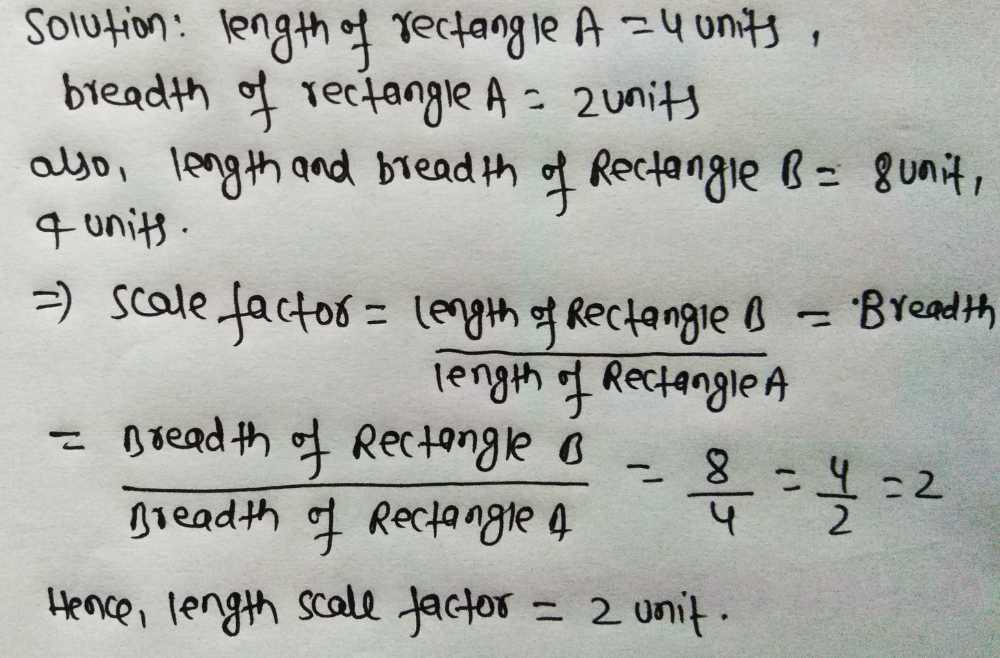 Solution: length of rectangle A = 4 units,
breadth of rectangle A = 2 units
also, length and breadth of Rectangle B = 8 unit,
4 units.
=) scale factor = length of Rectangle B = Breadth
length of Rectangle A
= Breadth of Rectangle B = 8 = 4 = 2
Breadth of Rectangle A 4 2
Hence, length scale factor = 2 unit.